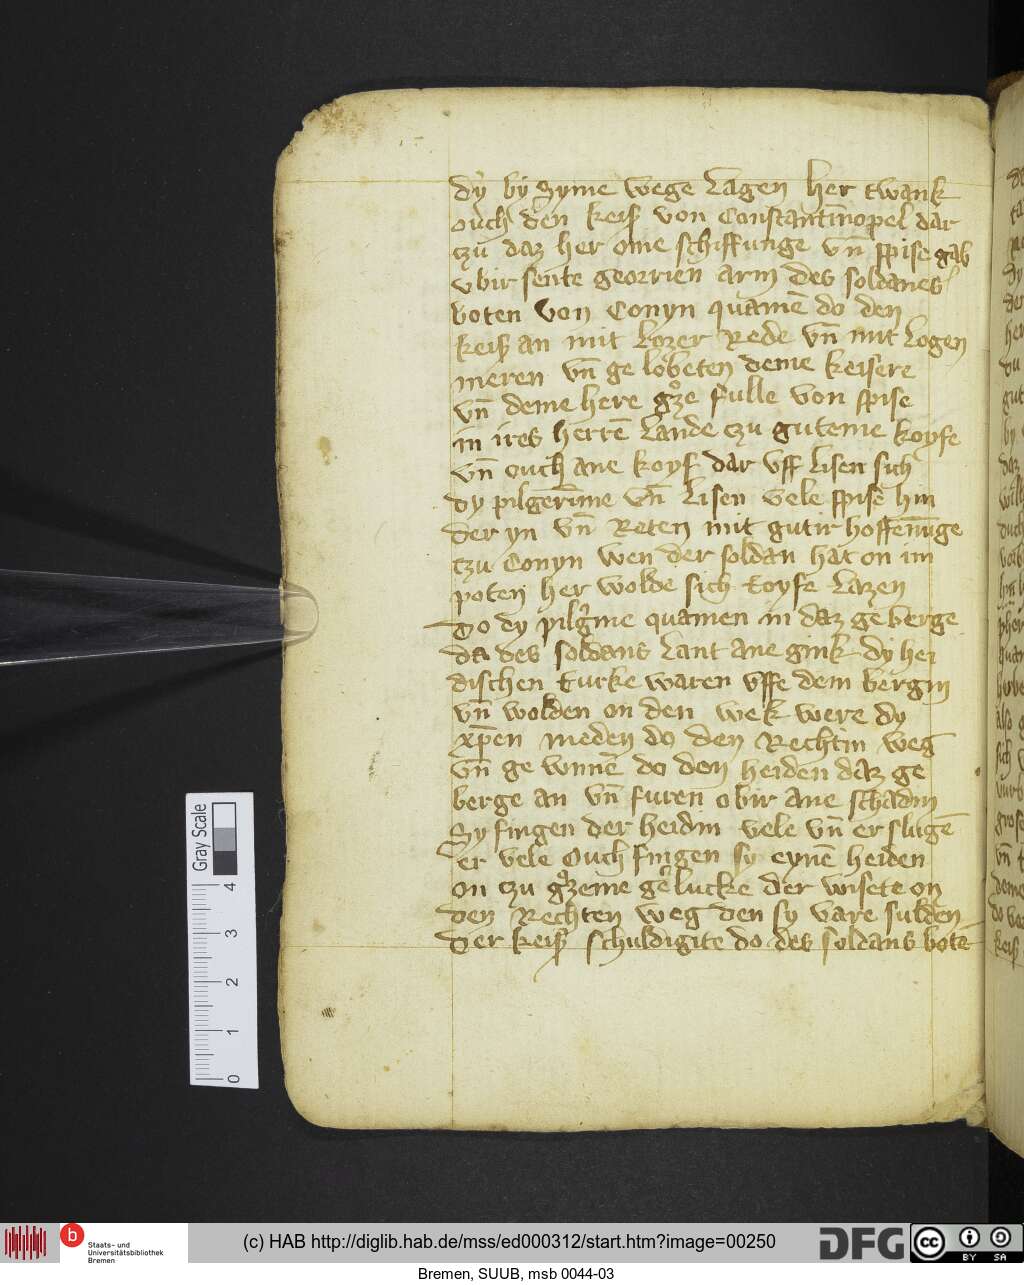 dy by Syme wege Lagen her twank
ouch den keiß von Constantinopel dar
czu daz her ome schiffunge vn̄ spise gab
vbir sente georrien arm des soldanes
boten von Conyn quamē do den
keiß an mit Lozer Rede vn̄ mit Logen
meren vn̄ ge lobeten deme keisere
vn̄ deme here gͦze fulle von spise
in ires herrē Lande czu guteme koyfe
vn̄ ouch ane koyf dar vff Lisen sich
dy pilgerīme vn̄ Lisen vele spise hin
der yn vn̄ Reten mit gutir hoffenūge
czu Conyn wen der soldan hat on im
poten her wolde sich toyfe Lazen
Do dy pilgͥme quamen in daz ge berge
da des soldans Lant ane gink dy hei
dischen turke waren vffe dem bergin
vn̄ wolden on den wek were dy
xp̄en meden do den Rechtin weg
vn̄ ge wnnē do den heiden daz ge
berge an vn̄ furen obir ane schadin
Sy fingen der heidin vele vn̄ er slugē
er vele Ouch fingen sy eynē heiden
on czu gͦzeme ge lucke der wisete on
den Rechten weg den sy vare sulden
Der keiß schuldigite do des soldans botē
Gray Scale
4
3
2
1
0
b
Staats- und
Universitätsbibliothek
Bremen
(c) HAB http://diglib.hab.de/mss/ed000312/start.htm?image=00250
DFG
cc BY SA
Bremen, SUUB, msb 0044-03